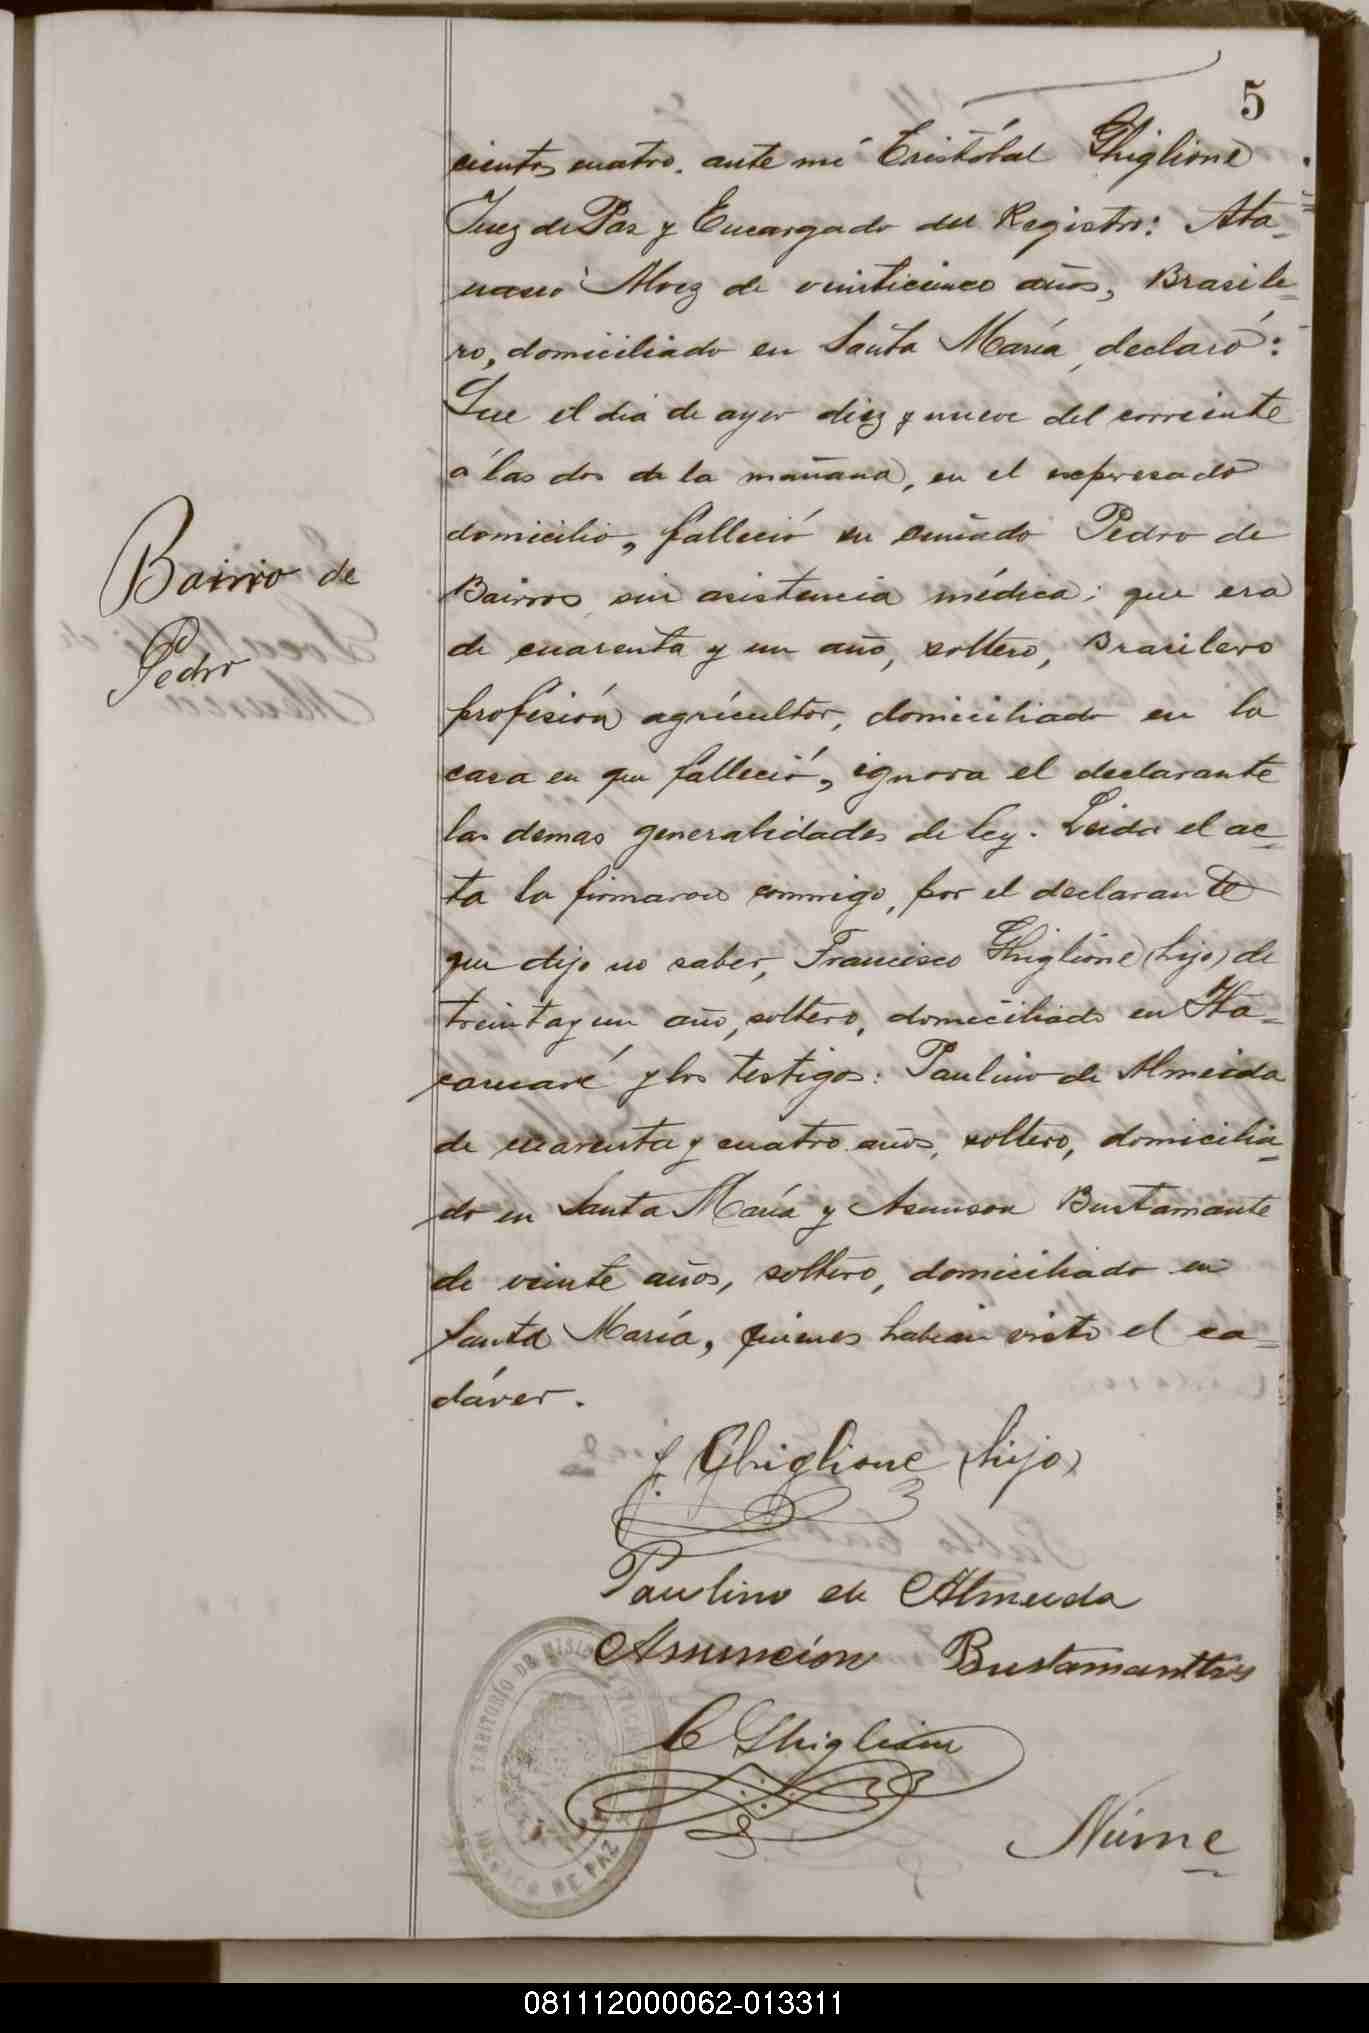 5
cientos cuatro. ante mí Cristóbal Ghiglione
Juez de Paz y Encargado del Registro: Ata-
nacio Alvez de veinticinco años, Brasile-
ro, domiciliado en Santa María, declaró:
Que el día de ayer diez y nueve del corriente
a las dos de la mañana, en el expresado
domicilio, falleció su cuñado Pedro de
Bairros sin asistencia médica; que era
de cuarenta y un año, soltero, Brasilero
profesión agrícultor, domiciliado en la
casa en que falleció, ignora el declarante
las demas generalidades de ley. Leida el ac-
ta la firmaron conmigo, por el declarante
que dijo no saber, Francisco Ghiglione (hijo) de
treinta y un año, soltero, domiciliado en Ita-
caruaré y los testigos: Paulino de Almeida
de cuarenta y cuatro años, soltero, domicilia-
do en Santa María y Asunson Bustamante
de veinte años, soltero, domiciliado en
Santa María, quienes habian visto el ca-
dáver.
Bairro de
Pedro
f. Ghiglione (hijo)
Paulino de Almeida
Asuncion Bustamante
C Ghiglione
TERRITORIO DE MISIONES
JUZGADO DE PAZ
Núme
081112000062-013311